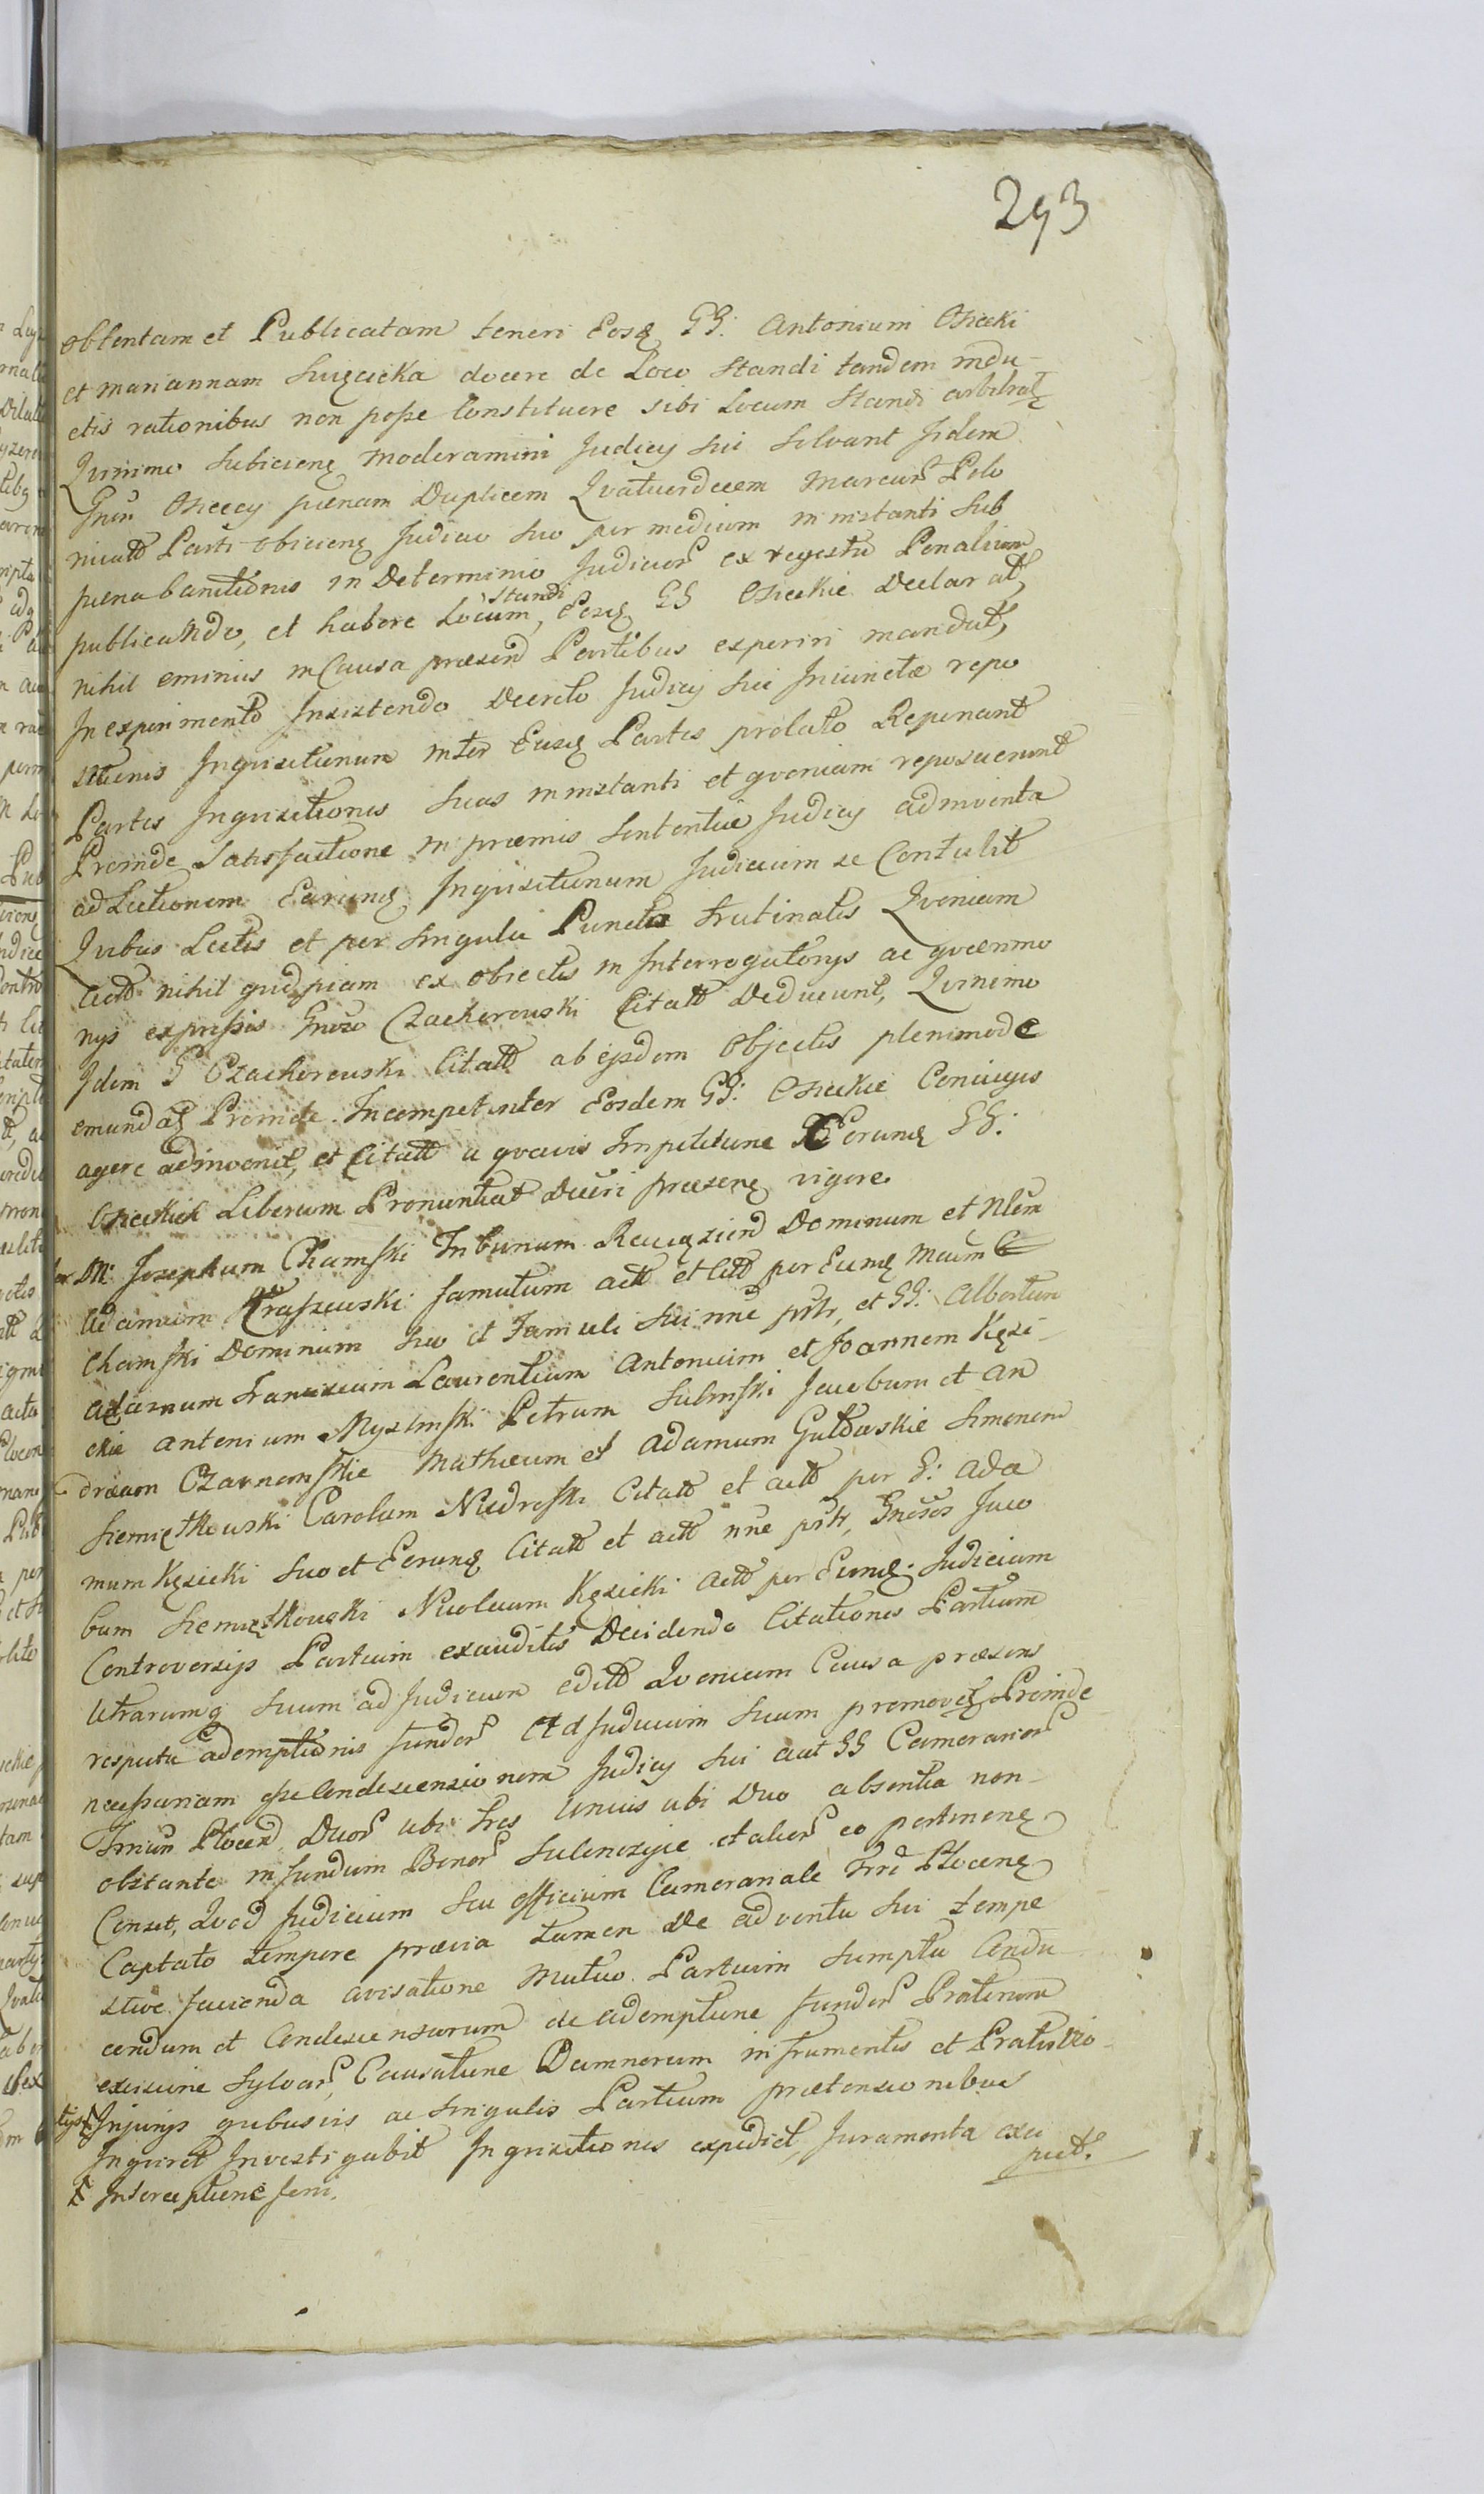 293
obtentam et Publicatam teneri Eosq GG: Antonium Osiecki
et mariannam Swięcicka docere de Loco Standi tandem indu-
ctis rationibus non posse Constituere sibi Locum Standi arbitratq
Qvinimo Subiicienq moderamini Judicy sui Solvant Fidem
Gnsi Osieccy pœnam Duplicem Qvatuordecem Marcar Polo
nicatt Parti obiicienq Judicio suo per medium in instanti Sub
pœna banitionis in Determinio Judicior ex regestu Penalium
publicando, et habere Locum, Standi Eosq GG Osieckie Declarat,
nihil eminus in Causa præsend Partibus experiri mandat,
In experimento Insistendo Decreto Judicy sui Iniunctæ repo
sitionis Inqvisitionum inter Easq Partes prolato Reponant
Partes Inqvisitiones suas in instanti et qvoniam reposuerunt
Proinde Satisfactione in præmis Sententiæ Judicy adinventa
ad Lectionem Earunq Inqvisitionum Judicium se Contulit
Qvibus Lectis et per Singula Puncta trutinatis Qvoniam
Actt nihil quidpiam ex obiectis in Interrogatorys ac qværimo
nys expressis Gnoso Czachorowski Citatt Deducunt, Qvinimo
Idem G Czachorowski Citatt ab ejsdem Objectis plenimode
emundatq Proinde Incompetenter Eosdem GG: Osieckie Coniuges
agere adinvenit, et Citatt a qvavis Impetitione Eorunq GG:
Osieckich Liberum Pronuntiat Decri præsenq vigore.
M: Josephum Chamski Tribunum Raciązend Dominum et Nlem
Adamum Kraszewski famulum actt et Citt per Eunq Mcum
Chamski Dominum suo et Famuli sui nne prtr, et GG: Albertum
Adamum Franciscum Laurentium Antonium et Joannem Kęsi-
ckie Antonium Myslinski Petrum Sulinski Jacobum et An
dream Czarnomskie Mathæum et Adamum Gutowskie Simonem
Siemiątkowski Carolum Niedroski Citatt et actt per G: Ada
mum Kęsicki suo et Eorunq Citatt et actt nne prtr, Gnosos Jaco
bum Siemiątkowski Nicolaum Kęsicki actt per Eunq. Judicium
Controversijs Partium exauditis Decidendo Citationes Partium
Utrarumq suum ad Judicium editt Qvoniam Causa præsens
respectu ademptionis fundor ad Judicium suum promovetq Proinde
necessariam esse Condescensionem Judicy sui aut GG Camerarior
Trrmr Plocend Duor ubi Tres Unius ubi Duo absentia non
obstante in fundum Bonor Sulenczyce et alior eo pertinenq
Censet, Qvod Judicium seu officium Camerariale Trrd Plocenq
Captato tempore prævia tamen de adventu sui tempe
stive facienda avisatione Mutuo Partium Sumptu Condu
cendum et Condescensurum de ademptione fundor Pratorum
excisione Sylvar, Causatione Damnorum in frumentis et Pratis Vio-
tys Injurys qvibusvis ac Singulis Partium prætensionibus
Inqviret Investigabit Inqvisitiones expediet, Juramenta exci
piet.
Interceptione foeni.